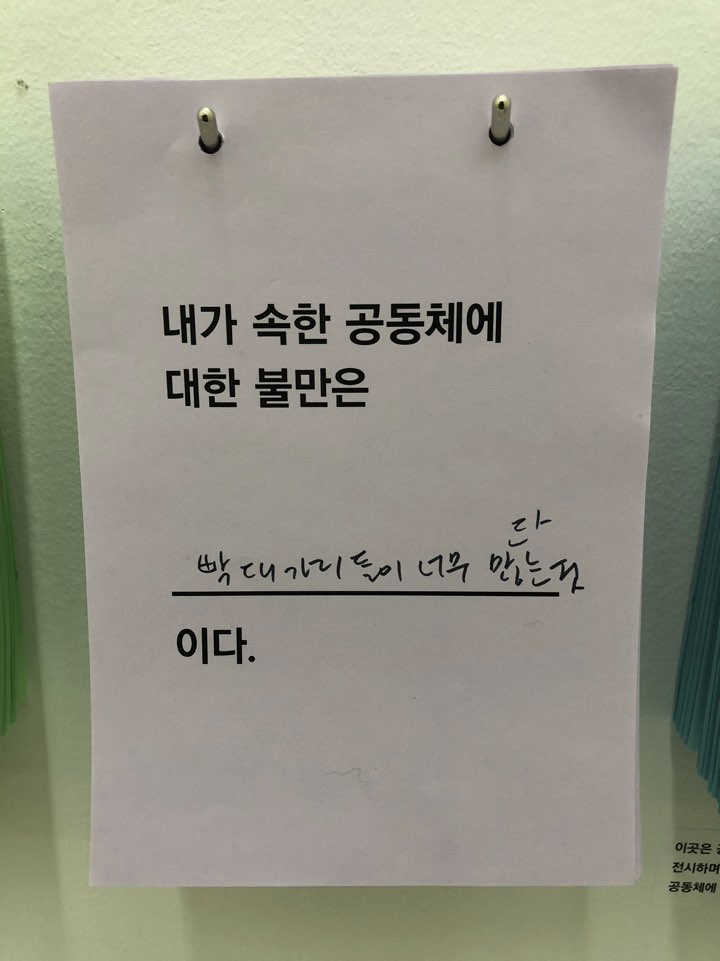 내가 속한 공동체에
대한 불만은
단
빡대가리들이 너무 많는것
이다.
이곳은
전시하며
공동체에